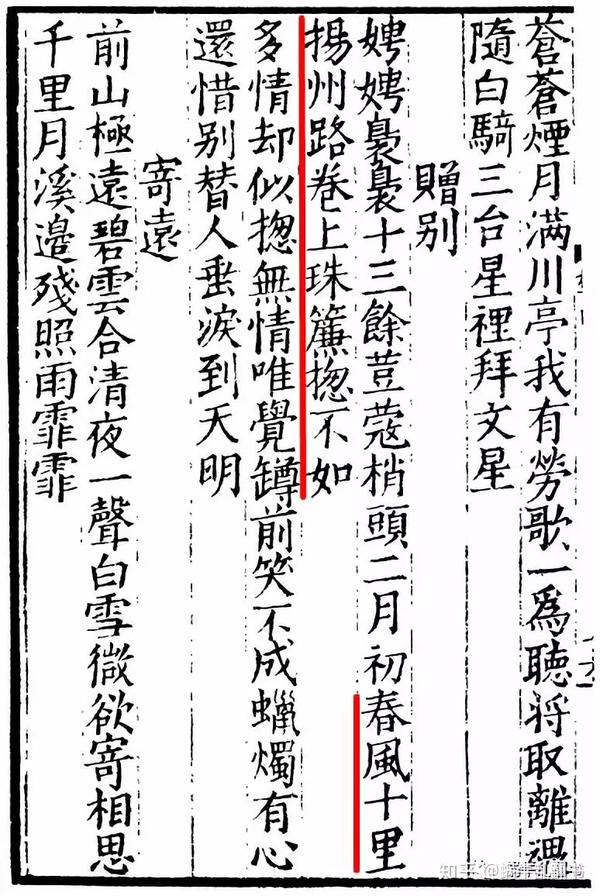 蒼蒼煙月滿川亭我有勞歌一爲聽將取離魂
隨白騎三台星裡拜文星
贈别
娉娉裊裊十三餘荳蔻梢頭二月初春風十里
揚州路卷上珠簾揔不如
多情却似揔無情唯覺罇前笑不成蠟燭有心
還惜别替人垂淚到天明
寄遠
前山極遠碧雲合清夜一聲白雪微欲寄相思
千里月溪邉殘照雨霏霏
知乎